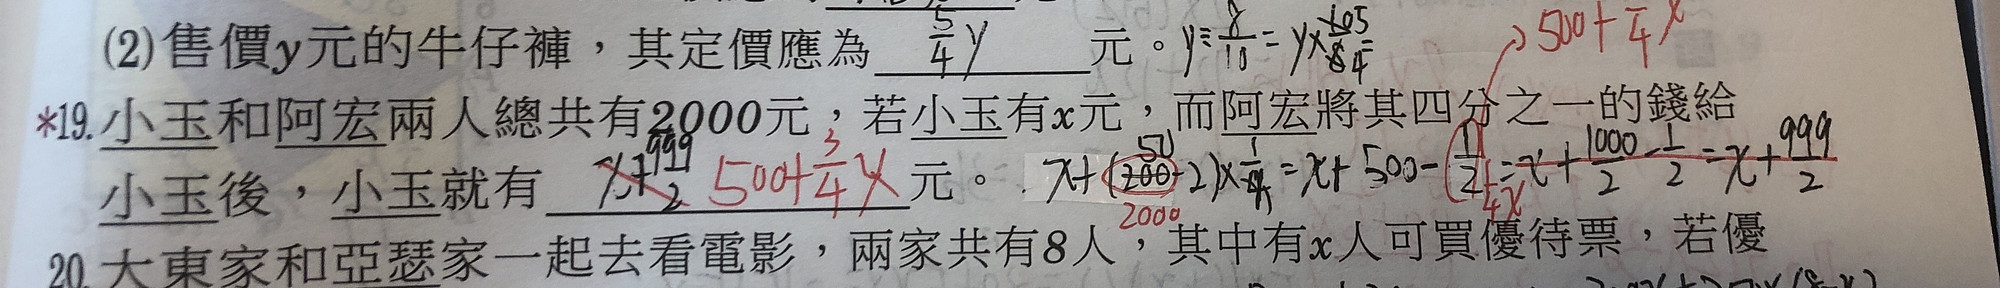 (2)售價y元的牛仔褲，其定價應為 5/4 y 元。
500+
*19.小玉和阿宏兩人總共有2000元，若小玉有x元，而阿宏將其四分之一的錢給
小玉後，小玉就有 500+3/4x 元。
=x+500-1/2=x+1000/2-1/2=x+999/2
2000
20.大東家和亞瑟家一起去看電影，兩家共有8人，其中有x人可買優待票，若優